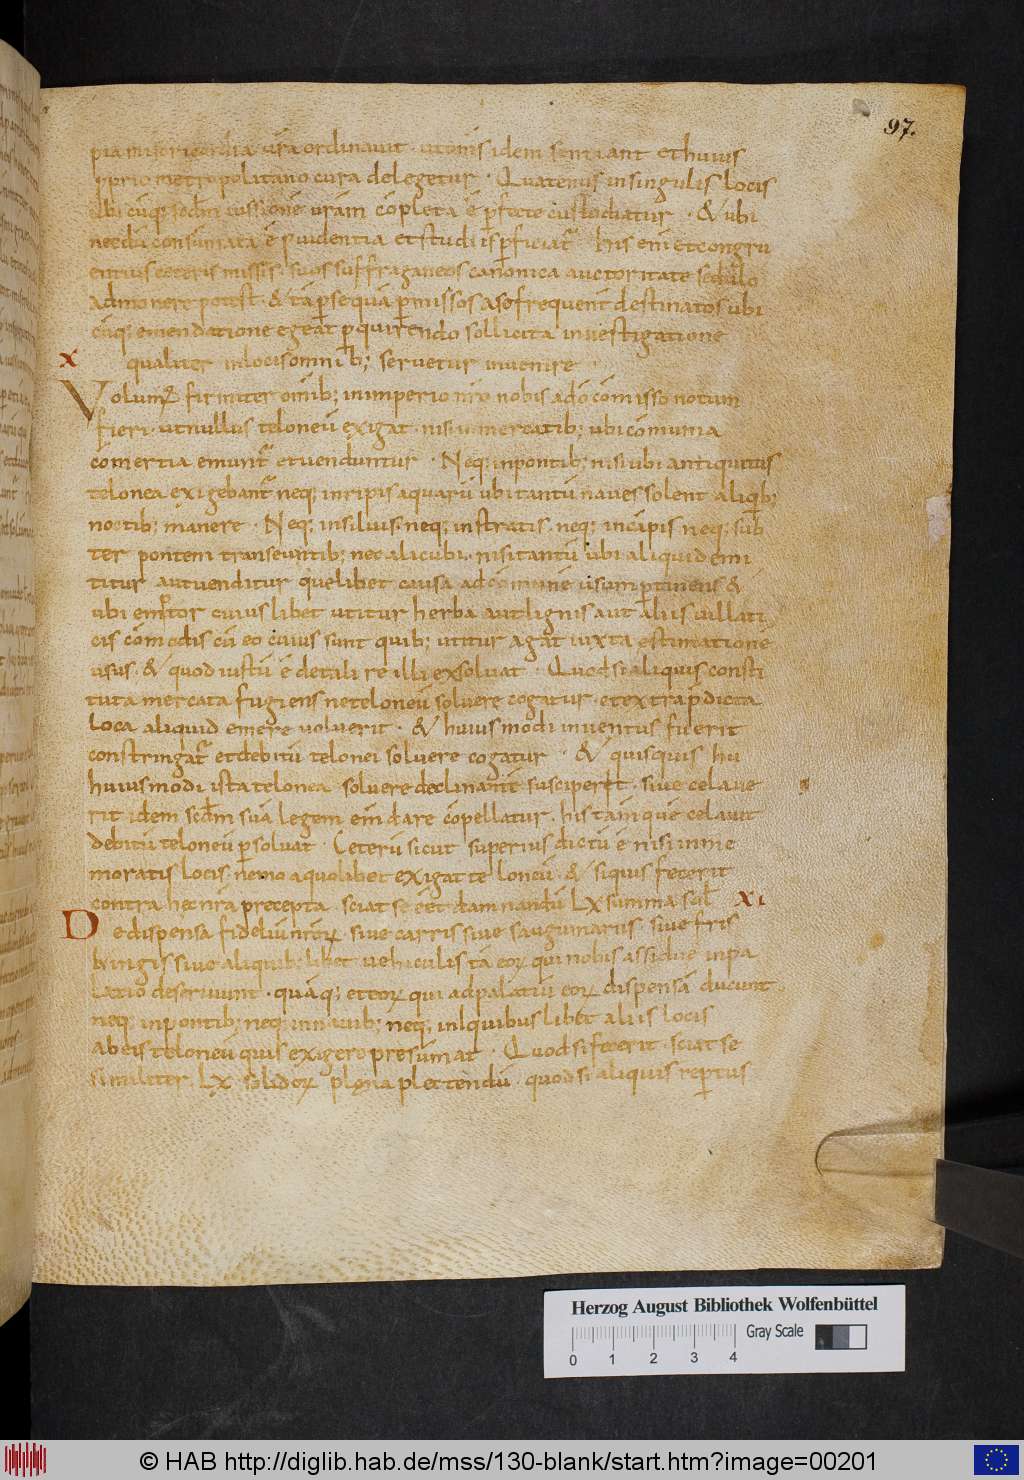 97.
pia misericordia ur̄a ordinauit · ut om̄s idem sentiant et huius
p̄prio metropolitano cura delegetur · Quatenus in singulis locis
ubi cūq; scd̄m iussionē ur̄am cōpleta ē p̄fecte custodiatur · & ubi
necdū consūmata ē et studiis p̄ficiat̄ his eni et congru
entius ceteris missis suos suffraganeos canonica auctoritate sedulo
admonere potest · & tā p̄ se quā p̄ missos a se frequent̄ destinatos ubi
cūq; emendatione egeat p̄quirendo sollicita inuestigatione
x qualiter in locis omnib; seruetur inuenire
Volum; firmiter om̄ib; in imperio nr̄o nobis a dō cōmisso notum
fieri · ut nullus teloneū exigat · nisi in mercatib; ubi cōmunia
cōmertia emunt̄ et uenduntur · Neq; in pontib; nisi ubi antiquitus
telonea exigebant̄ neq; in ripis aquarū ubi tantū naues solent aliq̄b;
noctib; manere · Neq; in siluis neq; in stratis · neq; in cāpis neq; sub
ter pontem transeuntib; nec alicubi · nisi tantū ubi aliquid emi
titur aut uenditur quelibet causa ad cōmunē usum p̄tinens &
ubi emptor cuius libet utitur herba aut lignis aut aliis uillati
cis cōmodis cū eo cuius sunt quib; utitur agat iuxta estimatione
usus · & quod iustū ē de tali re illi exsoluat · Quod si aliquis consti
tuta mercata fugiens ne teloneū soluere cogatur · et extra p̄dicta
loca aliquid emere uoluerit · & huius modi inuentus fuerit
constringat̄ et debitū telonei soluere cogatur · & quisquis hu
huius modi ista telonea soluere declinant̄ susciperet · siue celaue
rit idem scd̄m suā legem emdare cōpellatur · his tām que celauit
debitū teloneū p̄soluat · Ceterū sicut superius dictū ē nisi in me
moratis locis nemo a quolibet exigat te loneū · & si quis fecerit
contra hec nr̄a precepta · sciat se ēēt damnandū LX summa sol̄ XI
De dispensa fideliū nr̄or; · siue carris siue saugmariis · siue fris
kingis siue aliquib; libet uehiculis tā eor; qui nobis assidue in pa
latio deseruiunt · quāq; et eor; qui ad palatiū eor; dispensā ducunt
neq; in pontib; neq; in nauib; neq; in l quibus libet aliis locis
ab eis teloneū quis exigere presūmat · Quod si fecerit · sciat se
similiter LX solidor; plęna plectendū · quod si aliquis rep̄tus
Herzog August Bibliothek Wolfenbüttel
0 1 2 3 4 Gray Scale
© HAB http://diglib.hab.de/mss/130-blank/start.htm?image=00201